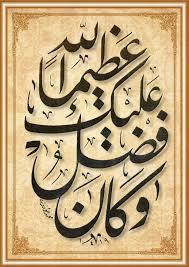 وكان
فضل
الله
عليك
عظيما